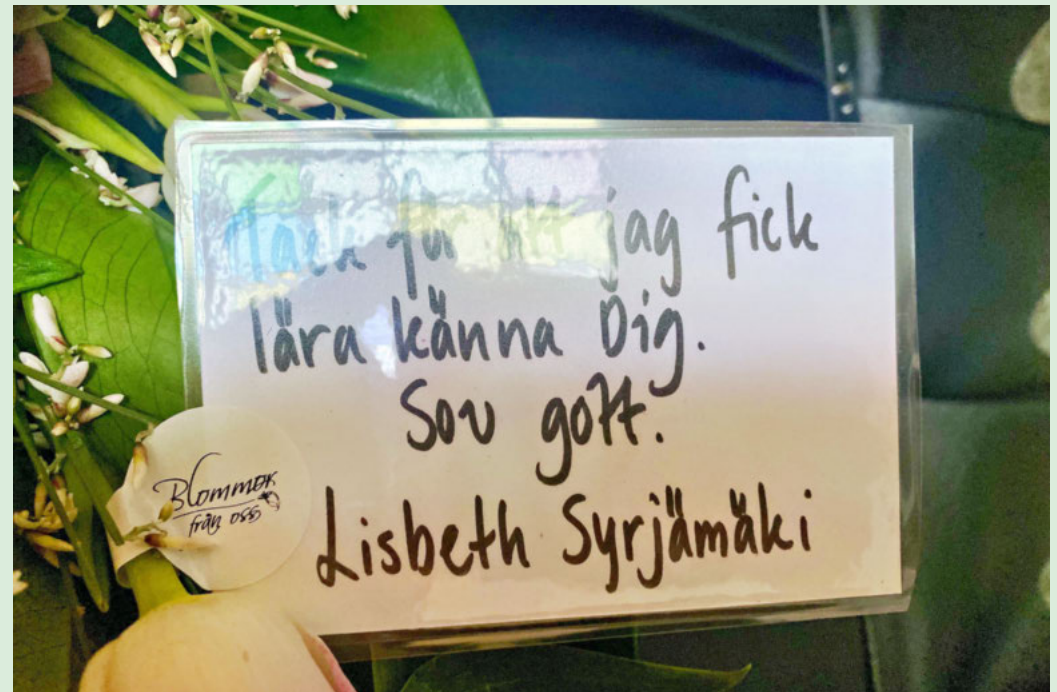 Tack för att jag fick
lära känna Dig.
Sov gott.
Lisbeth Syrjämäki
Blommor
från oss